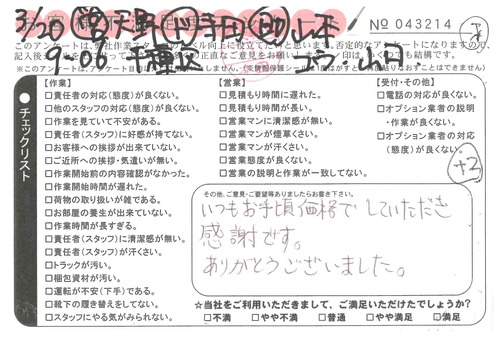 3/20 営 天野 リ 手田 助 山本
9:06 千種区 コウ・山口
No 043214
このアンケートは、弊社作業スタッフのレベル向上に役立てたいと思います。否定的なアンケートになりますので、
※このアンケートは
チェックリスト
【作業】
□責任者の対応(態度)が良くない。
□他のスタッフの対応(態度)が良くない。
□作業を見ていて不安がある。
□責任者(スタッフ)に好感が持てない。
□お客様への挨拶が出来ていない。
□ご近所への挨拶・気遣いが無い。
□作業開始前の内容確認がなかった。
□作業開始時間が遅れた。
□荷物の取り扱いが雑である。
□お部屋の養生が出来ていない。
□作業時間が長すぎる。
□責任者(スタッフ)に清潔感が無い。
□責任者(スタッフ)が汗くさい。
□トラックが汚い。
□梱包資材が汚い。
□運転が不安(下手)である。
□靴下の履き替えをしてない。
□スタッフにやる気がみられない。
【営業】
□見積もり時間に遅れた。
□見積もり時間が長い。
□営業マンに清潔感が無い。
□営業マンが煙草くさい。
□営業マンが汗くさい。
□営業態度が良くない。
□営業の説明と作業が一致してない。
【受付・その他】
□電話の対応が良くない。
□オプション業者の説明
・作業が良くない。
□オプション業者の対応
(態度)が良くない。
+3
その他、ご意見・ご要望等ありましたらお書き下さい。
いつもお手頃価格でしていただき
感謝です。
ありがとうございました。
☆当社をご利用いただきまして、ご満足いただけたでしょうか?
□不満 □やや不満 □普通 □やや満足 □満足